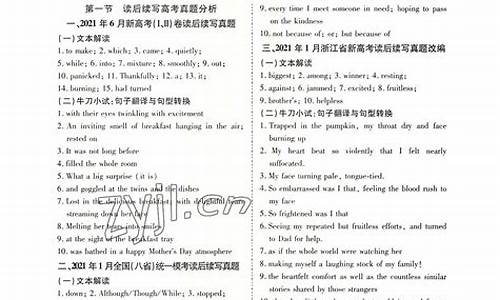 第一节 读后续写高考真题分析
一、2021 年 6 月新高考(I、II)卷读后续写真题
(一)文本解读
1. to make; 2. which; 3. came; 4. quietly;
5. while; 6. into; 7. mixture; 8. smoothly; 9. out;
10. panicked; 11. Thankfully; 12. a; 13. it;
14. burning; 15. had turned
(二)牛刀小试:句子翻译与句型转换
1. with their eyes twinkling with excitement
2. An inviting smell of breakfast hanging in the air;
rested on
3. It was not long before
4. filled the whole room
5. What a big surprise (it is)
6. and goggled at the twins and the dishes
7. Lost in the delicious breakfast, with delightful tears
streaming down her face
8. Melting her tears into smiles
9. at the sight of the breakfast tray
10. was bathed in a happy Mother's Day atmosphere
二、2021 年 1 月全国(八省)统一模考读后续写真题
(一)文本解读
1. down; 2. Although/Though/While; 3. stopped;
9. every time I meet someone in need; hoping to pass
on the kindness
10. not because of; or; but because of
三、2021 年 1 月浙江省新高考读后续写真题改编
(一)文本解读
1. biggest; 2. among; 3. winner; 4. resting;
5. against; 6. jammed; 7. excited; 8. fruitless;
9. brother's; 10. helpless
(二)牛刀小试:句子翻译与句型转换
1. Trapped in the pumpkin, my throat dry and face
burning up
2. My heart beat so violently that I felt nearly
suffocated.
3. My face turning pale, tongue-tied.
4. So embarrassed was I that, feeling the blood rush to
my face
5. So frightened was I that
6. Seeing my repeated but fruitless efforts, and turned
to Dad for help.
7. as if the whole world were watching her
8. making myself a laughing stock of my family!
9. the heartfelt comfort as well as the countless similar
stories shared by those strangers
zyjl.cn